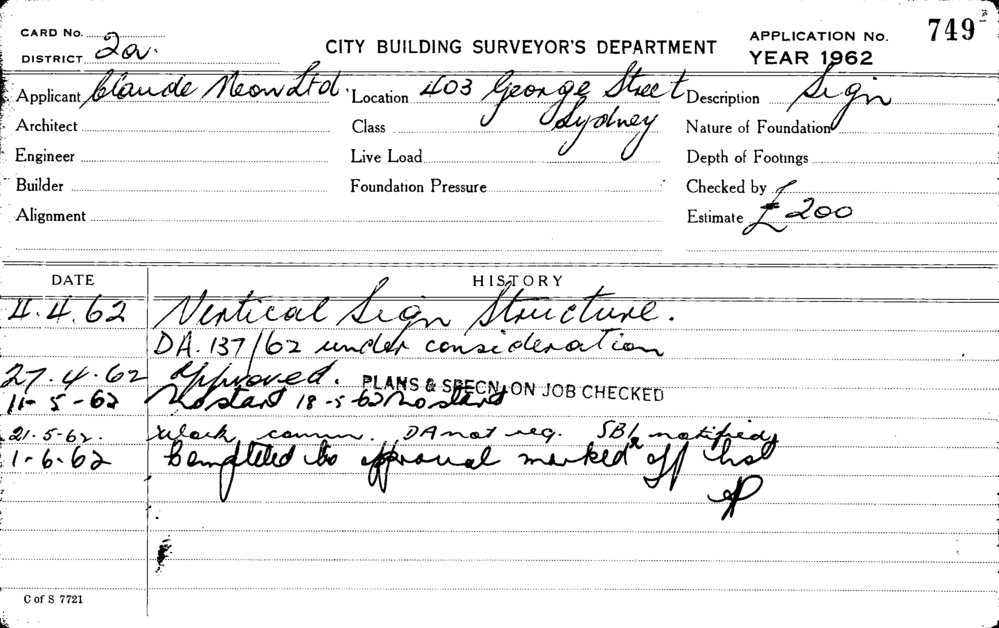 CARD No.
DISTRICT 2a.
CITY BUILDING SURVEYOR'S DEPARTMENT
APPLICATION No. 749
YEAR 1962
Applicant Claude Neon Ltd. Location 403 George Street Description Sign
Sydney
Architect Class Nature of Foundation
Engineer Live Load Depth of Footings
Builder Foundation Pressure Checked by
Alignment Estimate £200
DATE HISTORY
4.4.62 Vertical Sign Structure.
DA. 137/62 under consideration
27.4.62 Approved. PLANS & SPECN. ON JOB CHECKED
11-5-62 No start 18-5-62 No start
21.5-62. Work comm. DA not req. SB/2 notified
1-6.62 Completed to approval marked off list
C of S 7721